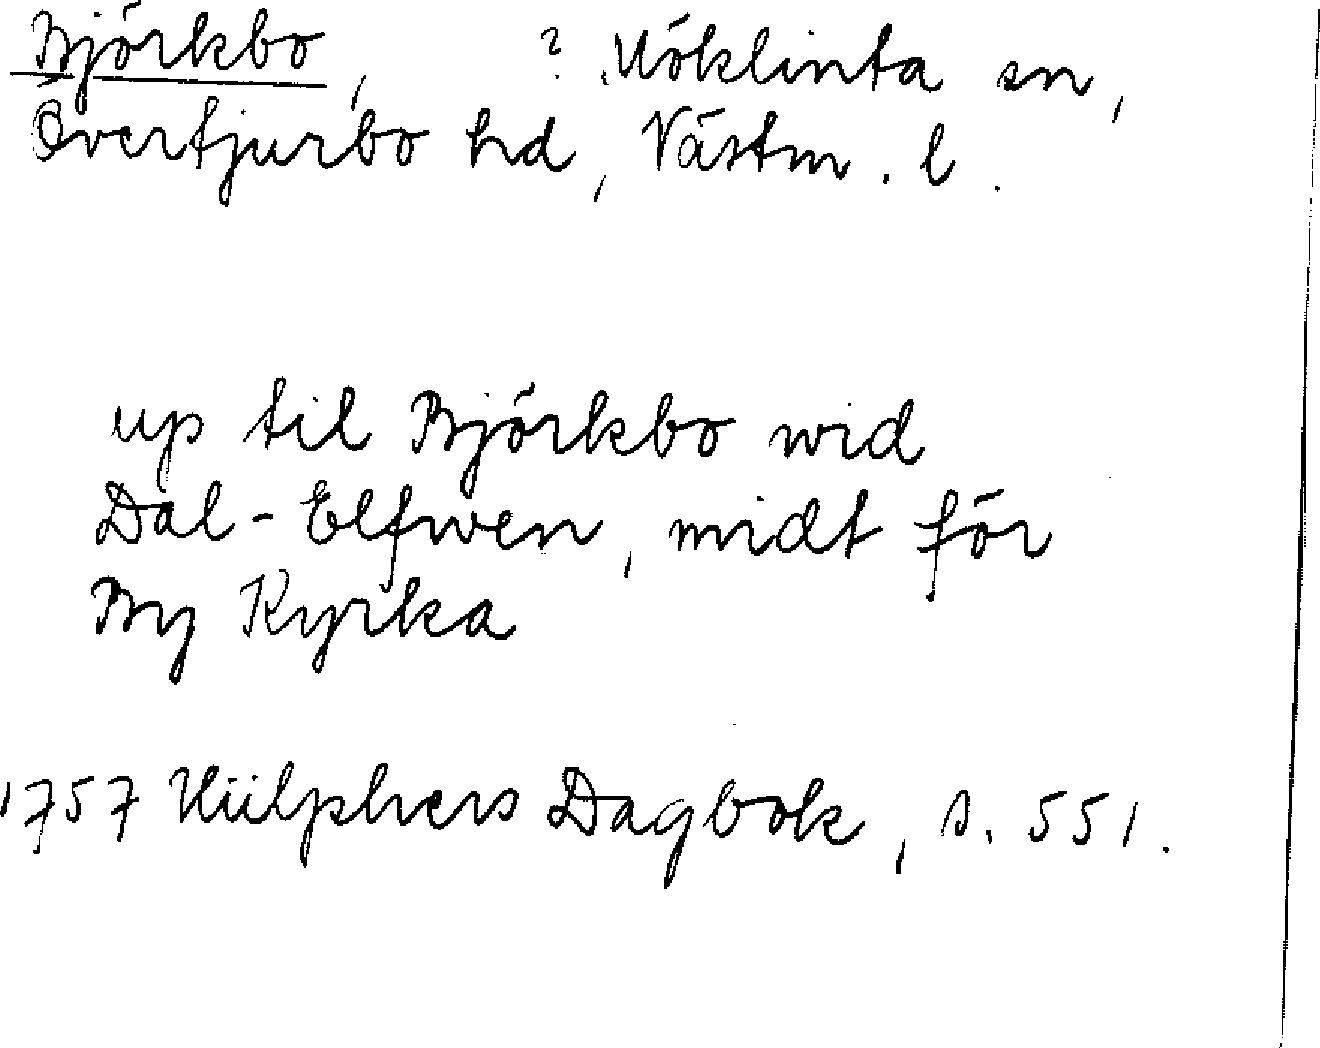 Björkbo, ? Möklinta sn,
Övertjurbo hd, Västm. l.
up til Björkbo wid
Dal-Elfwen, midt för
By Kyrka
1757 Hülphers Dagbok, s. 551.